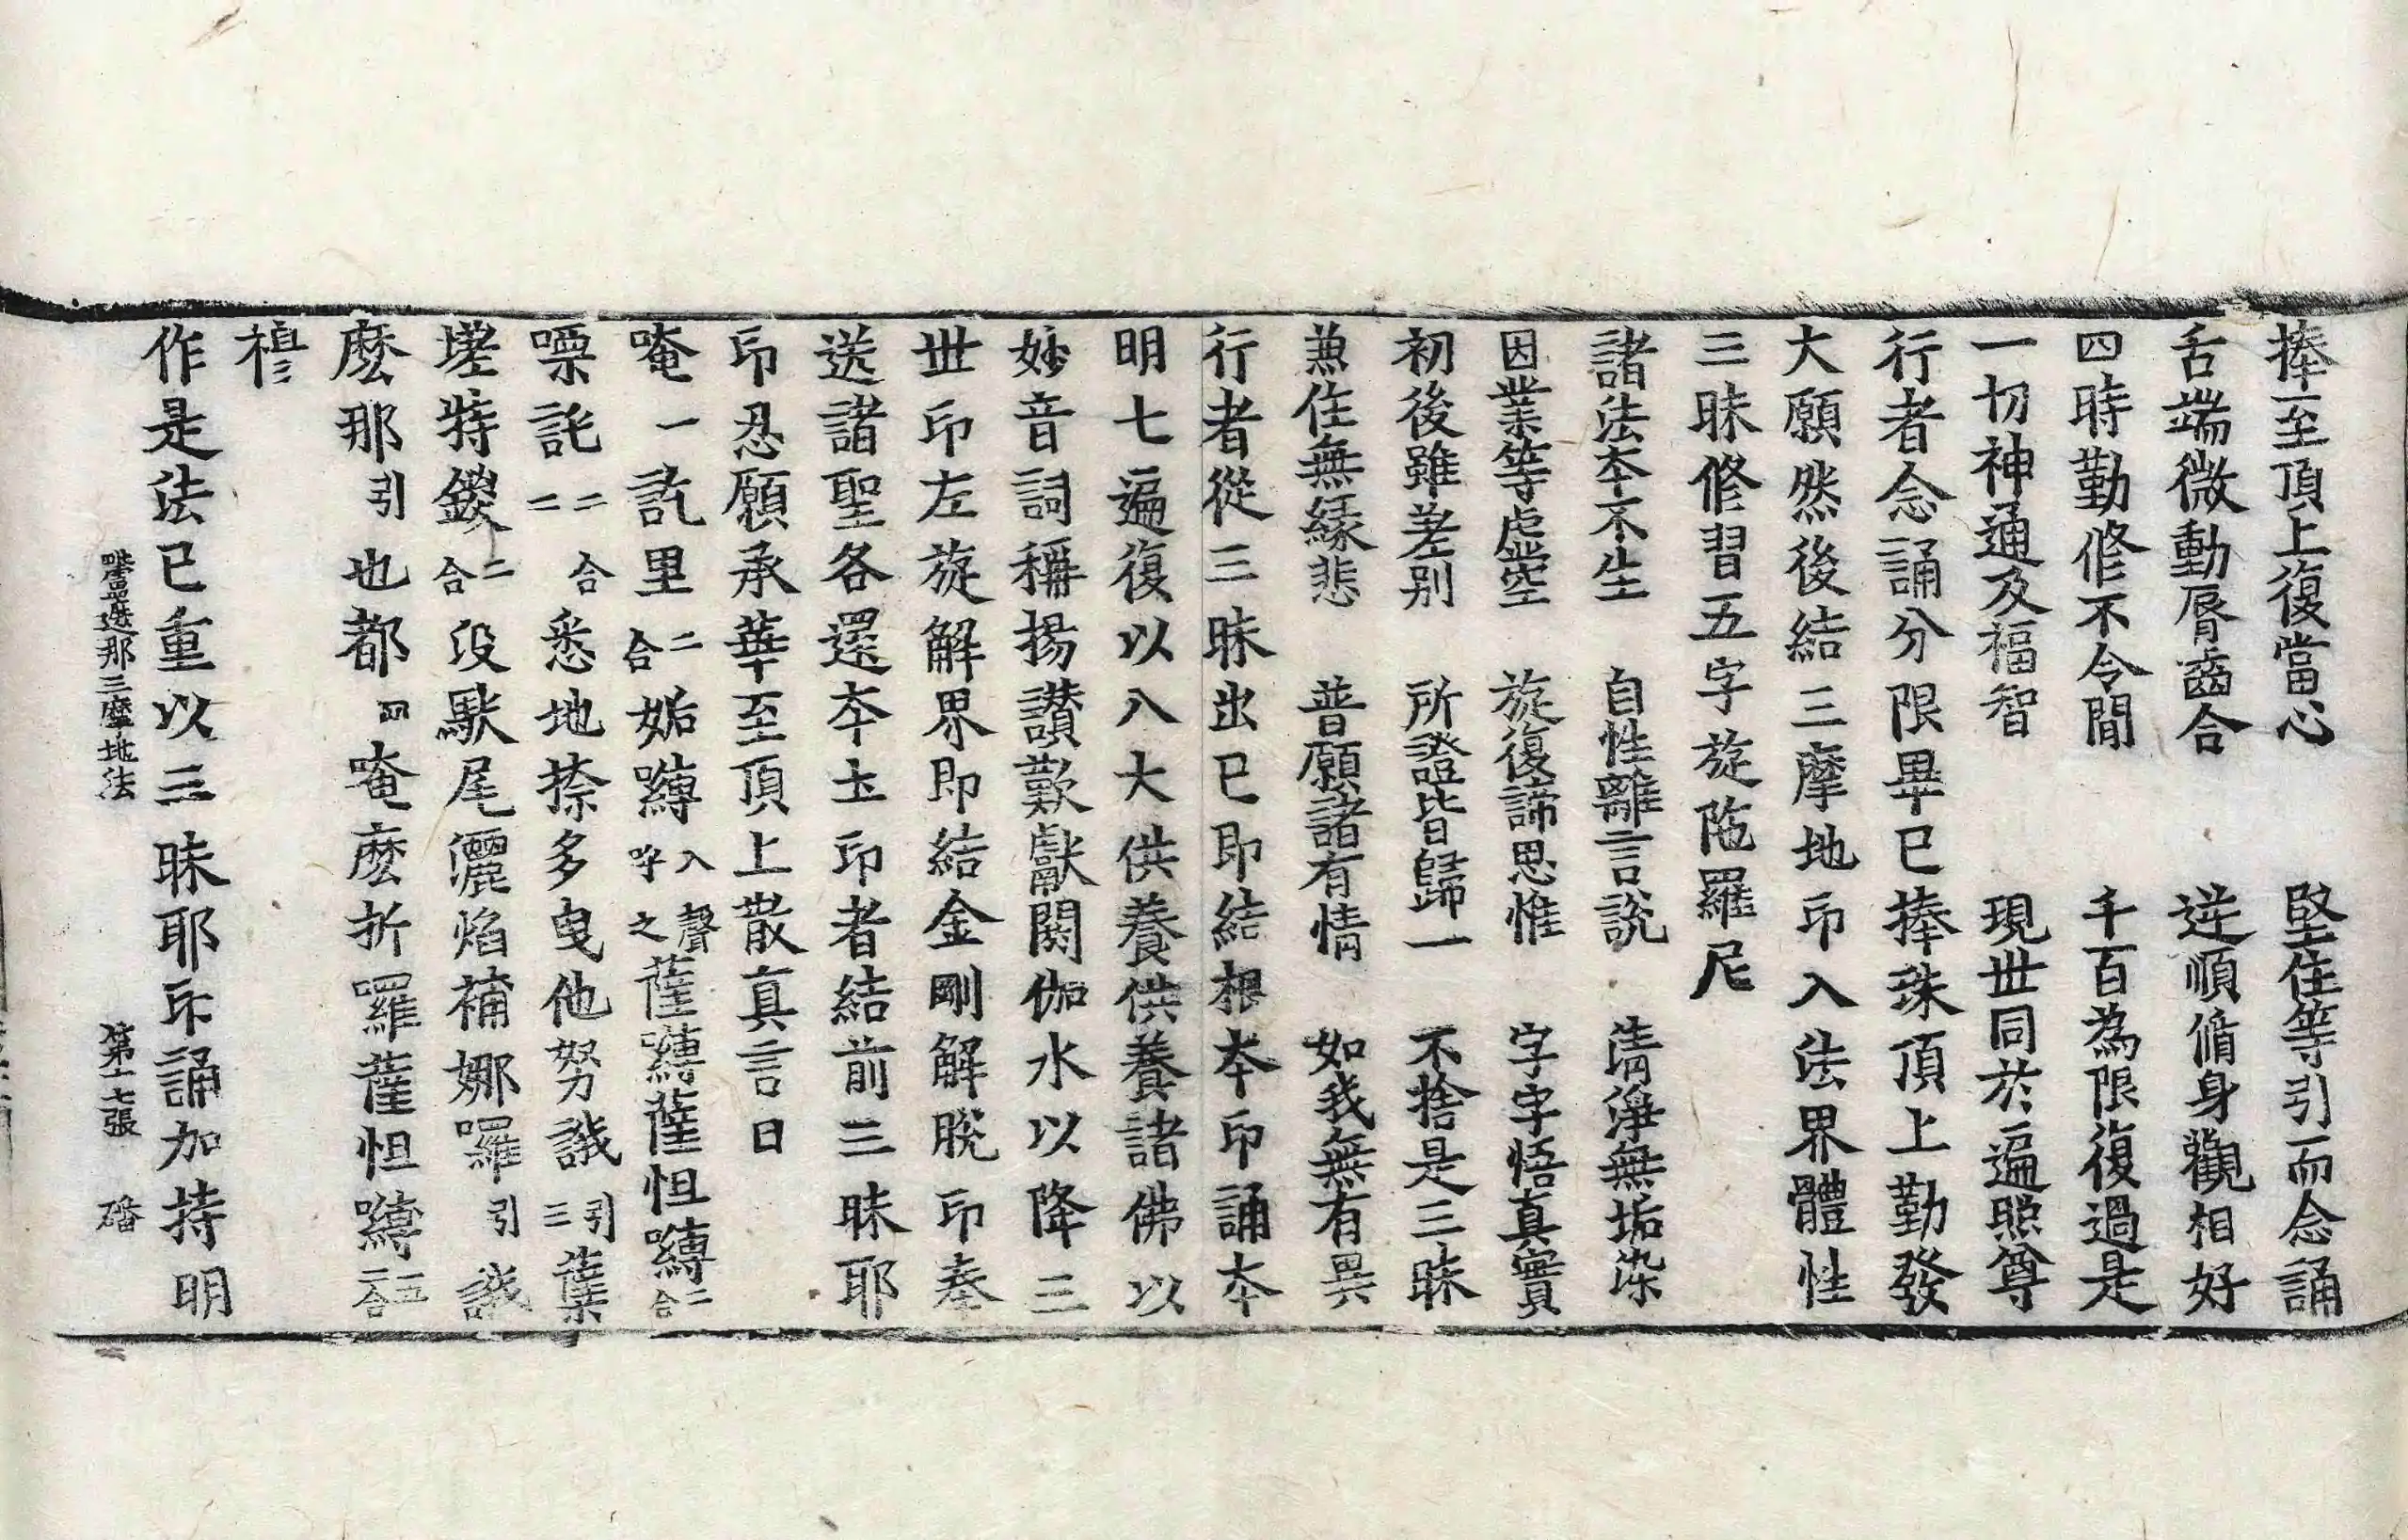 捧至頂上復當心　堅住等引而念誦
舌端微動脣齒合　逆順脩身觀相好
四時勤修不令間　千百為限復過是
一切神通及福智　現世同於遍照尊
行者念誦分限畢已捧珠頂上勤發
大願然後結三摩地印入法界體性
三昧修習五字旋陁羅尼
諸法夲不生　自性離言說　清淨無垢染
因業等虛空　旋復諦思惟　字字悟真實
初後雖差别　所證皆歸一　不捨是三昧
兼住無緣悲　普願諸有情　如我無有異
行者從三昧出已即結根夲印誦夲
明七遍復以八大供養供養諸佛以
妙音詞稱揚讃歎獻閼伽水以降三
世印左旋解界即結金剛解脫印奉
送諸聖各還夲土印者結前三昧耶
印忍願承華至頂上散真言曰
唵一訖里二合妬嚩入聲呼之薩嚩薩怛嚩二合
㗚託二合二悉地捺多曳他努誐引三蘖
蹉特鑁二合沒馱尾灑焰補娜囉引誐
麽那引也都四唵麽折囉薩怛嚩二合五
穆
作是法已重以三昧耶印誦加持明
毗盧遮那三摩地法　第十七張　磻